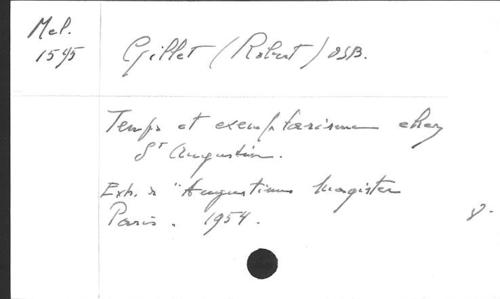 Mel.
1545
Gillet (Robert) OSB.
Temps et exemplarisme chez
St Augustin.
Extr. de "Augustinus Magister
Paris. 1954.
8.